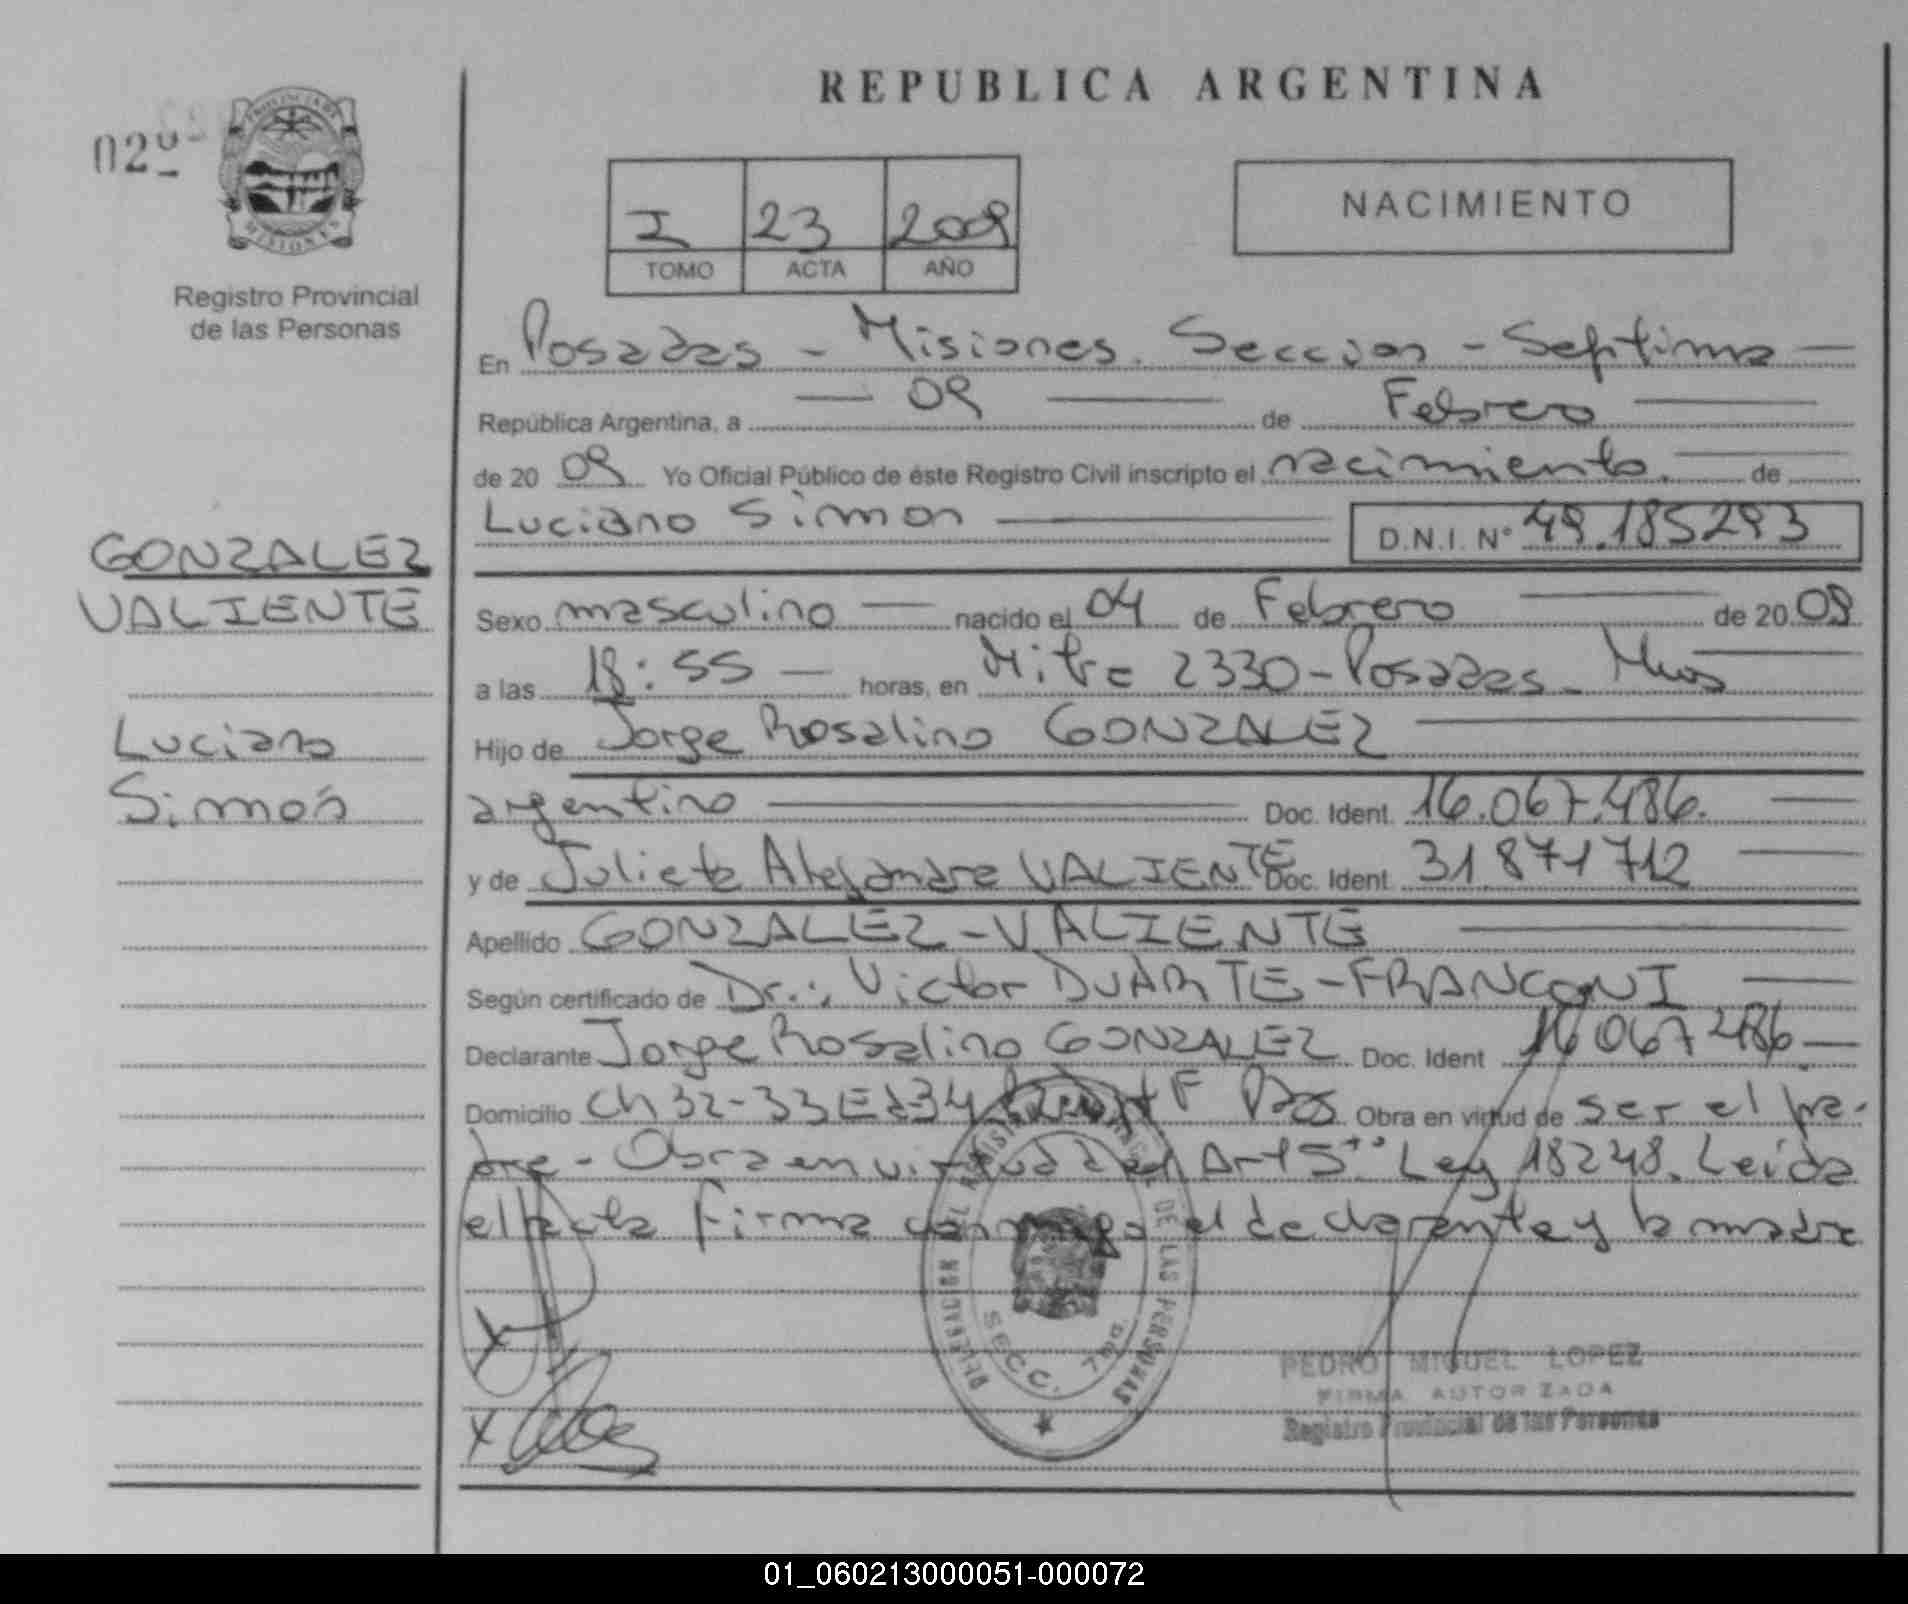 REPUBLICA ARGENTINA
PROVINCIA DE
MISIONES
Registro Provincial
de las Personas
I 23 2009
TOMO ACTA AÑO
NACIMIENTO
En Posadas - Misiones. Seccion - Septima
República Argentina, a 09 de Febrero
de 20 09 Yo Oficial Público de éste Registro Civil inscripto el nacimiento. de
Luciano Simon
D.N.I. N° 49.185293
GONZALEZ
VALIENTE
Luciano
Simón
Sexo masculino nacido el 04 de Febrero de 20 09
a las 18:55 horas, en Mitre 2330 - Posadas - Mnes
Hijo de Jorge Rosalino GONZALEZ
argentino Doc. Ident. 16.067.486.
y de Julieta Alejandra VALIENTE Doc. Ident. 31.871712
Apellido GONZALEZ - VALIENTE
Según certificado de Dr.: Victor DUARTE - FRANCONI
Declarante Jorge Rosalino GONZALEZ Doc. Ident 16 067 486
Domicilio Ch 32-33 Ed 34 F Pdas Obra en virtud de ser el pa-
dre - Obra en virtud del Art 5to Ley 18248. Leida
el acta firma conmigo el declarante y la madre
DE LAS PERSONAS
SECC. 7ma.
PEDRO MIGUEL LOPEZ
FIRMA AUTORIZADA
Registro Provincial de las Personas
01_060213000051-000072